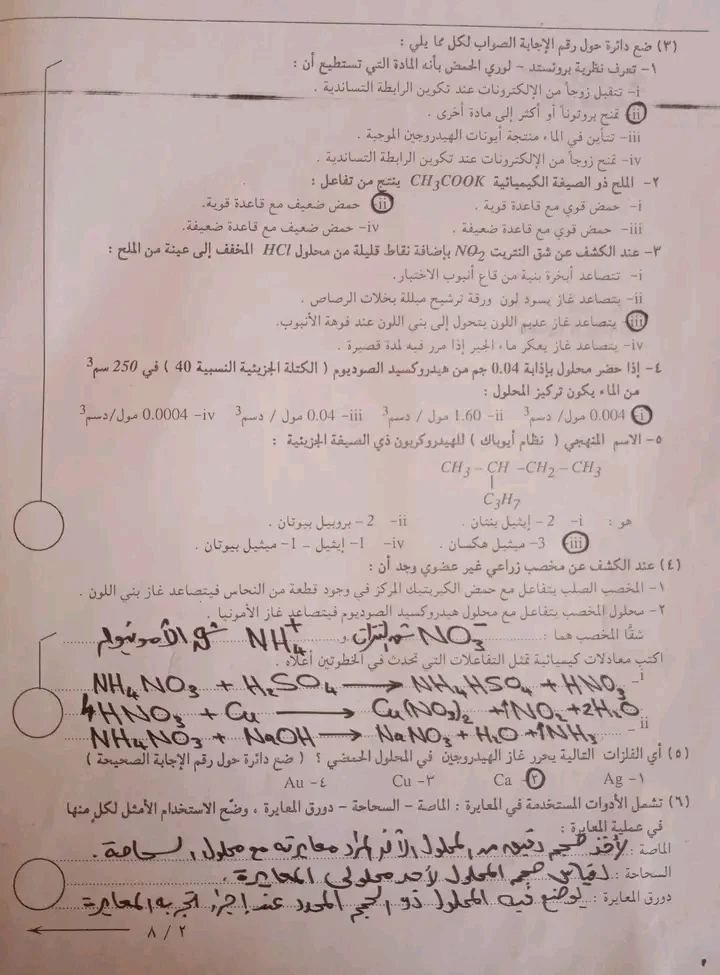 (٣) ضع دائرة حول رقم الإجابة الصواب لكل مما يلي :
١- تعرف نظرية برونستد - لوري الحمض بأنه المادة التي تستطيع أن :
i- تتقبل زوجاً من الإلكترونات عند تكوين الرابطة التساندية .
ii- تمنح بروتوناً أو أكثر إلى مادة أخرى .
iii- تتأين في الماء منتجة أيونات الهيدروجين الموجبة .
iv- تمنح زوجاً من الإلكترونات عند تكوين الرابطة التساندية .
٢- الملح ذو الصيغة الكيميائية CH3COOK ينتج من تفاعل :
i- حمض قوي مع قاعدة قوية . ii- حمض ضعيف مع قاعدة قوية.
iii- حمض قوي مع قاعدة ضعيفة . iv- حمض ضعيف مع قاعدة ضعيفة.
٣- عند الكشف عن شق النتريت NO2⁻ بإضافة نقاط قليلة من محلول HCl المخفف إلى عينة من الملح :
i- تتصاعد أبخرة بنية من قاع أنبوب الاختبار.
ii- يتصاعد غاز يسود لون ورقة ترشيح مبللة بخلات الرصاص .
iii- يتصاعد غاز عديم اللون يتحول إلى بني اللون عند فوهة الأنبوب.
iv- يتصاعد غاز يعكر ماء الجير إذا مرر فيه لمدة قصيرة .
٤- إذا حضر محلول بإذابة 0.04 جم من هيدروكسيد الصوديوم ( الكتلة الجزيئية النسبية 40 ) في 250 سم³
من الماء يكون تركيز المحلول :
i- 0.004 مول/ دسم³ ii- 1.60 مول / دسم³ iii- 0.04 مول / دسم³ iv- 0.0004 مول/دسم³
٥- الاسم المنهجي ( نظام أيوباك ) للهيدروكربون ذي الصيغة الجزيئية :
CH3 – CH –CH2 – CH3
|
C3H7
هو : i- 2 - إيثيل بنتان . ii- 2 - بروبيل بيوتان .
iii- 3- ميثيل هكسان . iv- 1- إيثيل - 1- ميثيل بيوتان .
(٤) عند الكشف عن مخصب زراعي غير عضوي وجد أن :
١- المخصب الصلب يتفاعل مع حمض الكبريتيك المركز في وجود قطعة من النحاس فيتصاعد غاز بني اللون .
٢- محلول المخصب يتفاعل مع محلول هيدروكسيد الصوديوم فيتصاعد غاز الأمونيا .
شقا المخصب هما : NO3⁻ شق النترات و NH4⁺ شق الأمونيوم
اكتب معادلات كيميائية تمثل التفاعلات التي تحدث في الخطوتين أعلاه .
i- NH4NO3 + H2SO4 → NH4HSO4 + HNO3
4HNO3 + Cu → Cu(NO3)2 + 2NO2 + 2H2O
ii- NH4NO3 + NaOH → NaNO3 + H2O + NH3
(٥) أي الفلزات التالية يحرر غاز الهيدروجين في المحلول الحمضي ؟ ( ضع دائرة حول رقم الإجابة الصحيحة )
١- Ag ٢- Ca ٣- Cu ٤- Au
(٦) تشمل الأدوات المستخدمة في المعايرة : الماصة - السحاحة - دورق المعايرة ، وضّح الاستخدام الأمثل لكل منها
في عملية المعايرة :
الماصة : لأخذ حجم دقيق من المحلول الآخر المراد معايرته مع محلول السحاحة .
السحاحة : لقياس حجم المحلول لأحد محلولي المعايرة .
دورق المعايرة : يوضع فيه المحلول ذو الحجم المحدد عند إجراء تجربة المعايرة
٨ / ٢